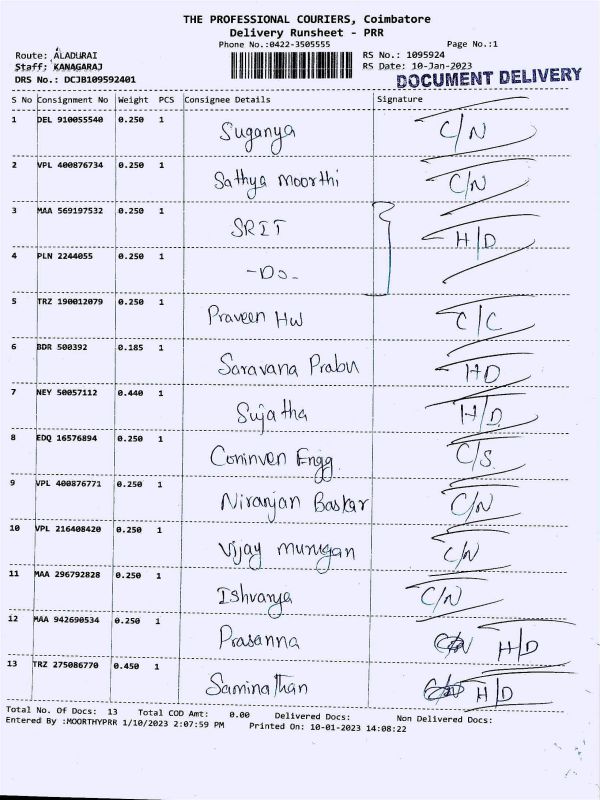 THE PROFESSIONAL COURIERS, Coimbatore
Delivery Runsheet - PRR
Phone No.:0422-3505555 Page No.:1
Route: ALADURAI RS No.: 1095924
Staff: KANAGARAJ RS Date: 10-Jan-2023
DRS No.: DCJB109592401 DOCUMENT DELIVERY
S No Consignment No Weight PCS Consignee Details Signature
1 DEL 910055540 0.250 1 Suganya C/N
2 VPL 400876734 0.250 1 Sathya moorthi C/N
3 MAA 569197532 0.250 1 SRIT H/D
4 PLN 2244055 0.250 1 -Do-
5 TRZ 190012079 0.250 1 Praveen HW C/C
6 BDR 500392 0.185 1 Saravana Prabu HD
7 NEY 50057112 0.440 1 Sujatha H/D
8 EDQ 16576894 0.250 1 Coninven Engg. C/S.
9 VPL 400876771 0.250 1 Niranjan Baskar C/N
10 VPL 216408420 0.250 1 Vijay murugan C/N
11 MAA 296792828 0.250 1 Ishvarya C/N
12 MAA 942690534 0.250 1 Prasanna H/D
13 TRZ 275086770 0.450 1 Saminathan H/D
Total No. Of Docs: 13 Total COD Amt: 0.00 Delivered Docs: Non Delivered Docs:
Entered By :MOORTHYPRR 1/10/2023 2:07:59 PM Printed On: 10-01-2023 14:08:22